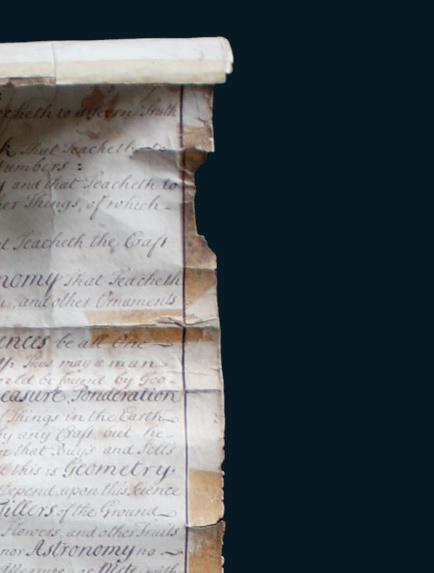 cheth to discern Truth
k that Teacheth to
umbers :
y and that Teacheth to
er Things, of which
t Teacheth the Craft
nomy that Teacheth
and other Ornaments
ences be all One
Thus may a man
orld be found by Geo-
easure, Ponderation
Things in the Earth
by any Craft but he
n that Buys and Sells
this is Geometry.
Depend upon this Science
Tillers of the Ground
Flowers, and other Fruits
nor Astronomy no
with